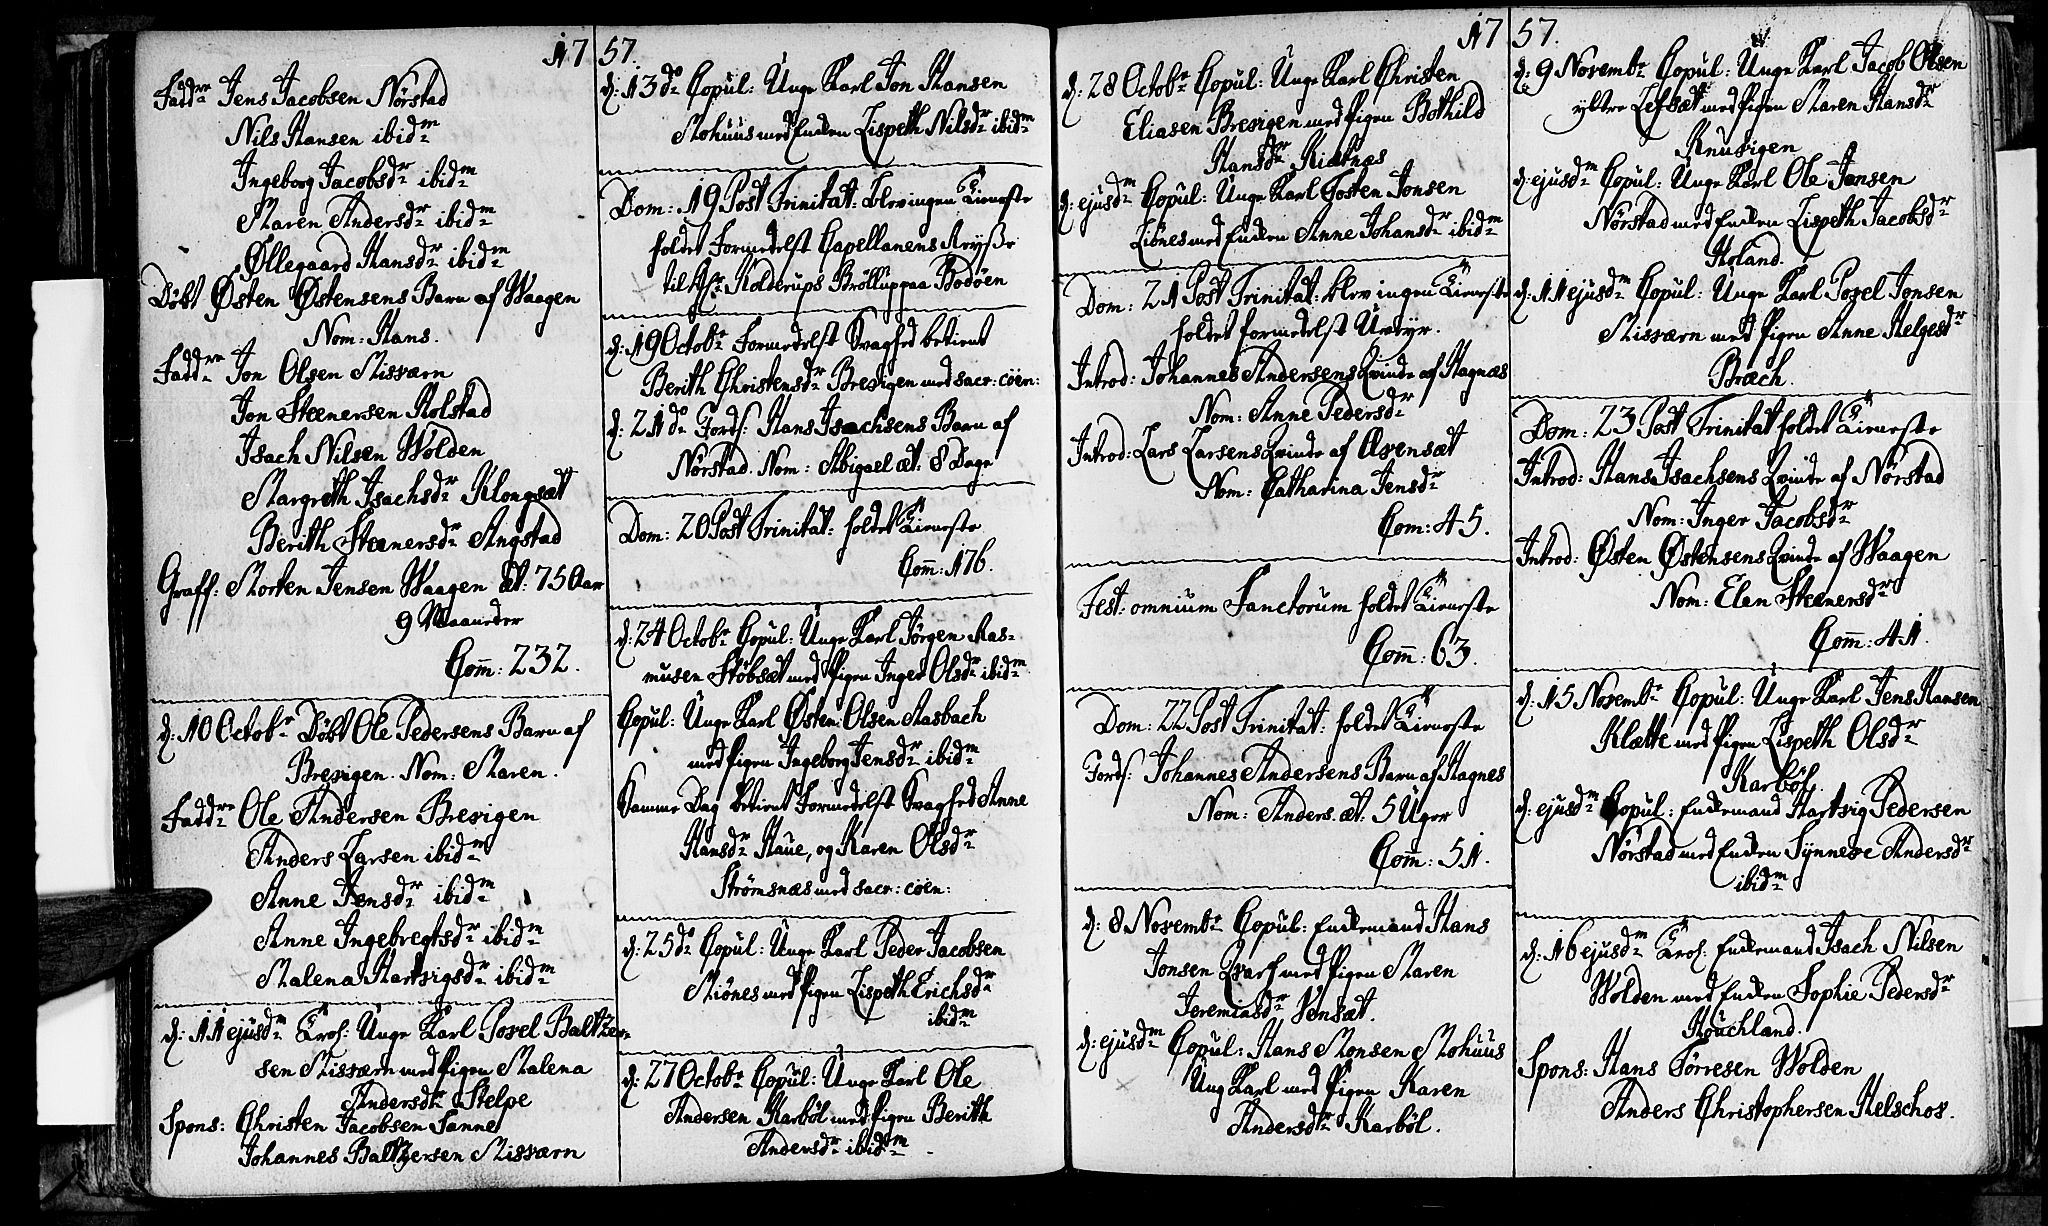 1757.
Fadd:re Jens Jacobsen Nörstad
Nils Hansen ibid:m
Ingeborg Jacobsd:r ibid:m
Maren Andersd:r ibid:m
Øllegaard Hansd:r ibid:m
Döbt Østen Østensens Barn af Waagen
Nom: Hans.
Fadd:re Jon Olsen Misværn
Jon Steenersen Rolstad
Isach Nilsen Wolden
Margreth Isachsd:r Klongsæt
Berith Steenersd:r Angstad
Graff: Morten Jensen Waagen æt: 75 Aar
9 Maaneder
Com̄: 232.
d: 10 Octob:r Döbt Ole Pedersens Barn af
Brevigen. Nom: Maren.
Fadd:re Ole Andersen Brevigen
Anders Larsen ibid:m
Anne Jensd:r ibid:m
Anne Ingebregtsd:r ibid:m
Malena Hartvigsd:r ibid:m
d: 11 ejusd:m Trol: Unge Karl Povel Baltzer-
sen Misværn med Pigen Malena
Andersd:r Stelpe
Spons: Christen Jacobsen Sanne
Johannes Baltzersen Misværn
d: 13 d:o Copul: Unge Karl Jon Hansen
Mohuus med Enken Lispeth Nilsd:r ibid:m
Dom: 19 Post Trinitat: blev ingen Tieneste
holdet formedelst Capellanens Reyse
til Hr: Holderups Bröllup paa Bodöen
d: 19 Octob:r Formedelst Svaghed betient
Berith Christensd:r Brevigen med sacr: coen:
d: 21 d:o Jords: Hans Isachsens Barn af
Nörstad. Nom: Abigael æt: 8 Dage
Dom: 20 Post Trinitat: holdet Tieneste
Com̄: 176.
d: 24 Octob:r Copul: Unge Karl Jörgen Ras-
musen Stöbsæt med Pigen Inger Olsd:r ibid:m
Copul: Unge Karl Østen Olsen Aasbach
med Pigen Ingeborg Jensd:r ibid:m
Samme Dag betient formedelst Svaghed Anne
Hansd:r Haue, og Karen Olsd:r
Strömsnæs med sacr: coen:
d: 25 d:o Copul: Unge Karl Peder Jacobsen
Miönes med Pigen Lispeth Erichsd:r
ibid:m
d: 27 Octob:r Copul: Unge Karl Ole
Andersen Karböl med Pigen Berith
Andersd:r ibid:m
1757.
d: 28 Octob:r Copul: Unge Karl Christen
Eliasen Brevigen med Pigen Bothild
Hansd:r Kietnes
d: ejusd:m Copul: Unge Karl Tosten Jonsen
Liönes med Enken Anne Johansd:r ibid:m
Dom: 21 Post Trinitat: blev ingen Tieneste
holdet formedelst Uveyr.
Introd: Johannes Andersens Qvinde af Hagnæs
Nom: Anne Pedersd:r
Introd: Lars Larsens Qvinde af Ævensæt
Nom: Catharina Jensd:r
Com: 45.
Fest: omnium Sanctorum holdet Tieneste
Com̄: 63.
Dom: 22 Post Trinitat: holdet Tieneste
Jords: Johannes Andersens Barn af Hagnes
Nom: Anders. æt: 5 Uger
Com̄: 51.
d: 8 Novemb:r Copul: Enkemand Hans
Jonsen Qvarf med Pigen Maren
Jeremiasd:r Vensæt.
d: ejusd:m Copul: Hans Monsen Mohuus
Ung Karl med Pigen Karen
Andersd:r Karböl.
d: 9 Novemb:r Copul: Unge Karl Jacob Olsen
yttre Lefsæt med Pigen Maren Hansd:r
Knuvigen
d: ejusd:m Copul: Unge Karl Ole Jansen
Nörstad med Enken Lispeth Jacobsd:r
Holand.
d: 11 ejusd:m Copul: Unge Karl Povel Jonsen
Misværn med Pigen Anne Helgesd:r
Bræch.
Dom: 23 Post Trinitat holdet Tieneste
Introd: Hans Isachsens Qvinde af Nörstad
Nom: Inger Jacobsd:r
Introd: Østen Østensens Qvinde af Waagen
Nom: Elen Steenersd:r
Com̄: 41.
d: 15 Novemb:r Copul: Unge Karl Jens Hansen
Klætte med Pigen Lispeth Olsd:r
Karböl.
d: ejusd:m Copul: Enkemand Hartvig Pedersen
Nörstad med Enken Synneve Andersd:r
ibid:m
d: 16 ejusd:m Trol: Enkemand Isach Nilsen
Wolden med Enken Sophie Pedersd:r
Houchland.
Spons: Hans Törresen Wolden
Anders Christophersen Helschov.